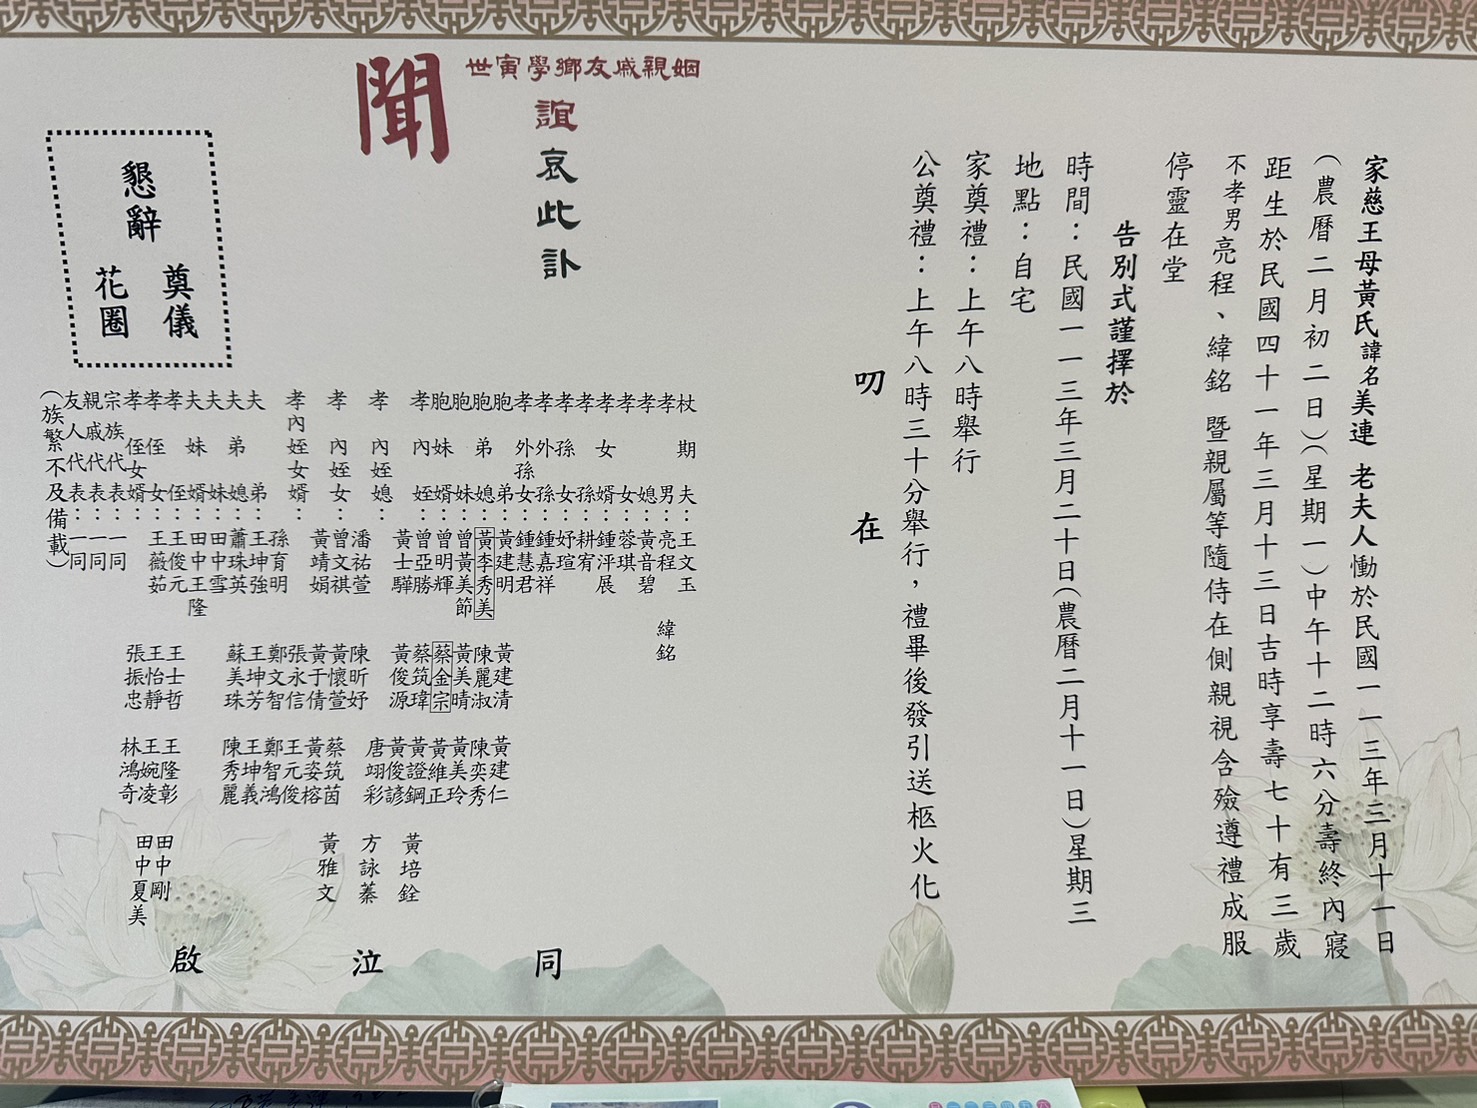 家慈王母黃氏諱名美連 老夫人慟於民國一一三年三月十一日
（農曆二月初二日）（星期一）中午十二時六分壽終內寢
距生於民國四十一年三月十三日吉時享壽七十有三歲
不孝男亮程、緯銘 暨親屬等隨侍在側親視含殮遵禮成服
停靈在堂
告別式謹擇於
時間：民國一一三年三月二十日（農曆二月十一日）星期三
地點：自宅
家奠禮：上午八時舉行
公奠禮：上午八時三十分舉行，禮畢後發引送柩火化
叨 在
姻親戚友鄉學寅世
誼哀此訃
聞
杖期夫：王文玉
孝男：亮程 緯銘
孝媳：黃音碧
孝女：蓉琪
孝女婿：鍾泙展
孝孫：耕宥
孝孫女：妤瑄
孝外孫：鍾嘉祥
孝外孫女：鍾慧君
胞弟：黃建明 黃建清 黃建仁
胞弟媳：黃李秀美 陳麗淑 陳奕秀
胞妹：曾黃美節 黃美晴 黃美玲
胞妹婿：曾明輝 蔡金宗 黃維正
孝內姪：曾亞勝 蔡筑瑋 黃證鋼 黃培銓
黃士驊 黃俊源 黃俊諺
孝內姪媳：潘祐萱 陳昕妤 唐翊彩 方詠蓁
孝內姪女：曾文祺 黃懷萱 蔡筑茵 黃雅文
黃靖娟 黃于倩 黃姿榕
孝內姪女婿：張永信 王元俊
孫育明 鄭文智 鄭智鴻
夫弟：王坤強 王坤芳 王坤義
夫弟媳：蕭珠英 蘇美珠 陳秀麗
夫妹：田中雪
夫妹婿：田中王隆
孝侄：王俊元 王士哲 王隆彰 田中剛
孝侄女：王薇茹 王怡靜 王婉凌 田中夏美
孝侄女婿：張振忠 林鴻奇
宗族代表：一同
親戚代表：一同
友人代表：一同
（族繁不及備載）
同 泣 啟
懇辭
奠儀
花圈